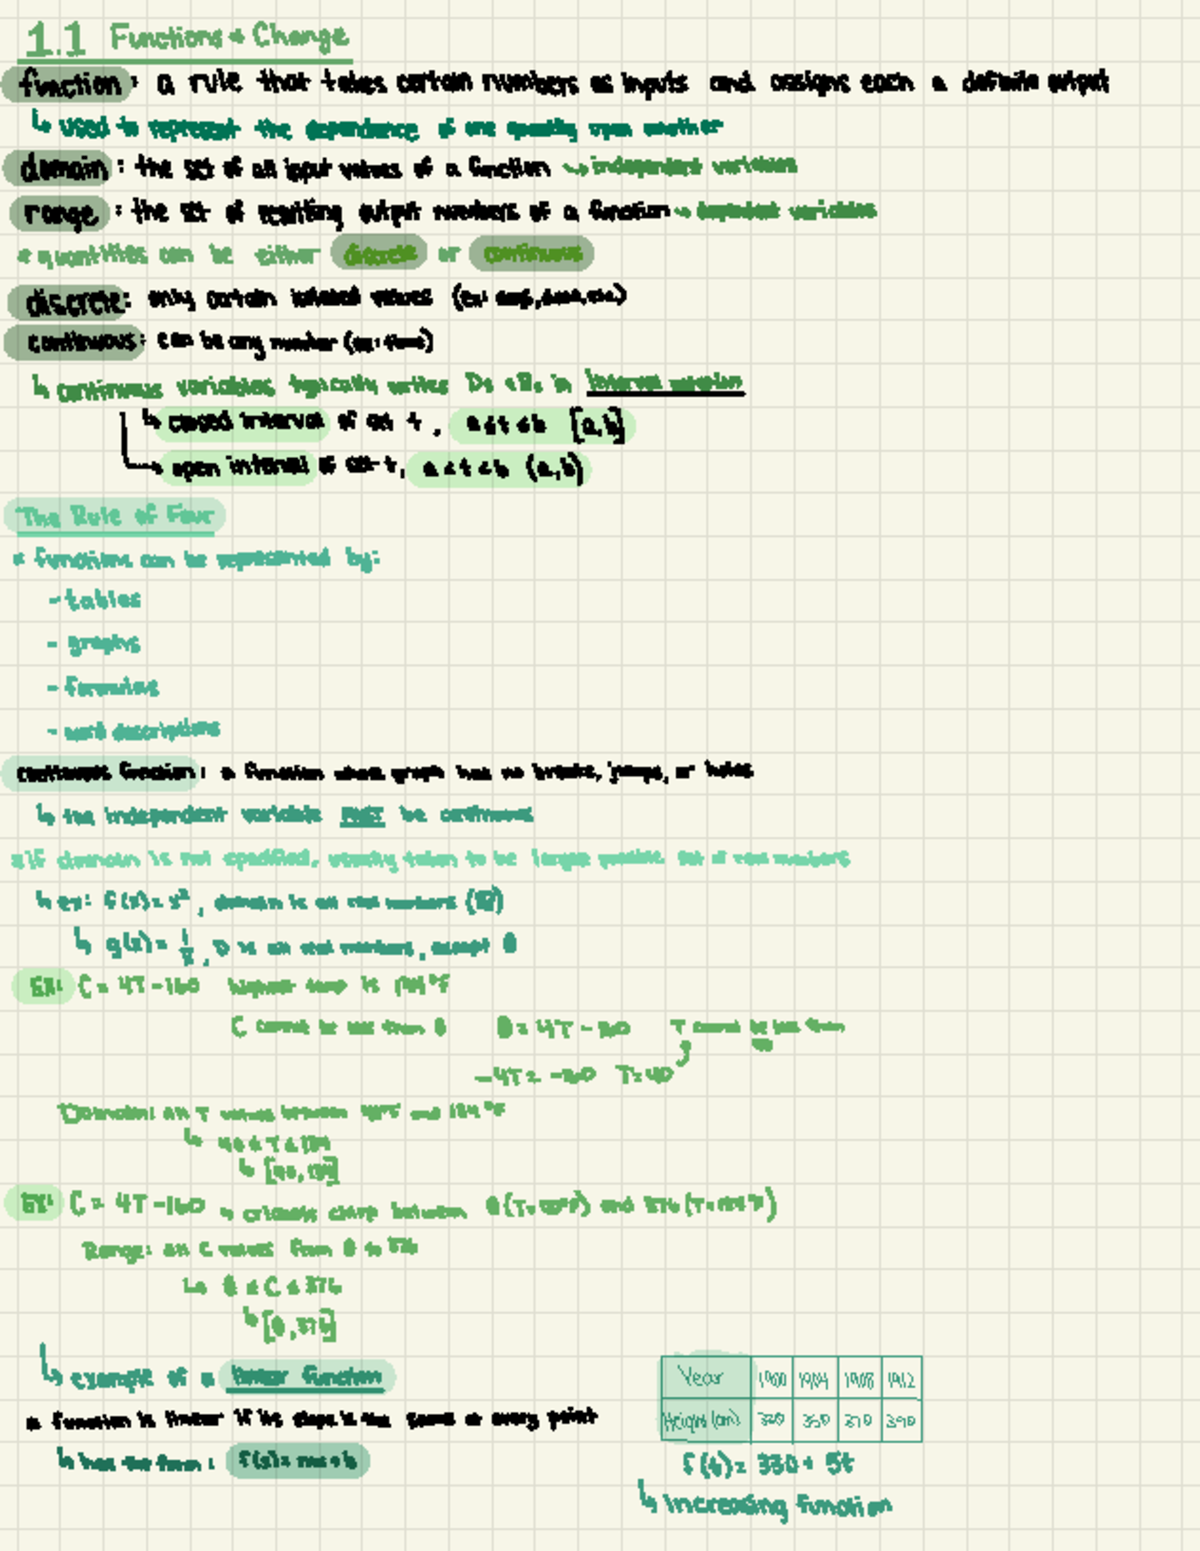 1.1 Functions & Change
function: a rule that takes certain numbers as inputs and assigns each a definite output
↳ used to represent the dependence of one quantity upon another
domain: the set of all input values of a function ↪ independent variables
range: the set of resulting output numbers of a function → dependent variables
* quantities can be either discrete or continuous
discrete: only certain isolated values (ex:
continuous: can be any number (ex: time)
↳ continuous variables typically writes Ds & Rs in interval notation
↳ closed interval of as t, a ≤ t ≤ b [a,b]
↳ open interval of as t, a < t < b (a,b)
The Rule of Four
* functions can be represented by:
- tables
- graphs
- formulas
- word descriptions
continuous function: a function whose graph has no breaks, jumps, or holes
↳ the independent variable MUST be continuous
* if domain is not specified, usually taken to be largest possible set of real numbers
↳ ex: f(x) = x², domain is all real numbers (ℝ)
↳ g(x) = 1/x, D is all real numbers, except 0
EX: C = 4T - 160 highest temp is 134°F
C cannot be less than 0 0 = 4T - 160 T cannot be less than 40
-4T = -160 T = 40
Domain: all T values between 40°F and 134°F
↳ 40 ≤ T ≤ 134
↳ [40, 134]
EX: C = 4T - 160 ↳ crickets chirp between 0 (T=40°F) and 376 (T=134°F)
Range: all C values from 0 to 376
↳ 0 ≤ C ≤ 376
↳ [0, 376]
↳ example of a linear function
* function is linear if its slope is the same at every point
↳ has the form: f(x) = mx + b
Year 1900 1904 1908 1912
Height (cm) 330 350 370 390
f(t) = 330 + 5t
↳ increasing function